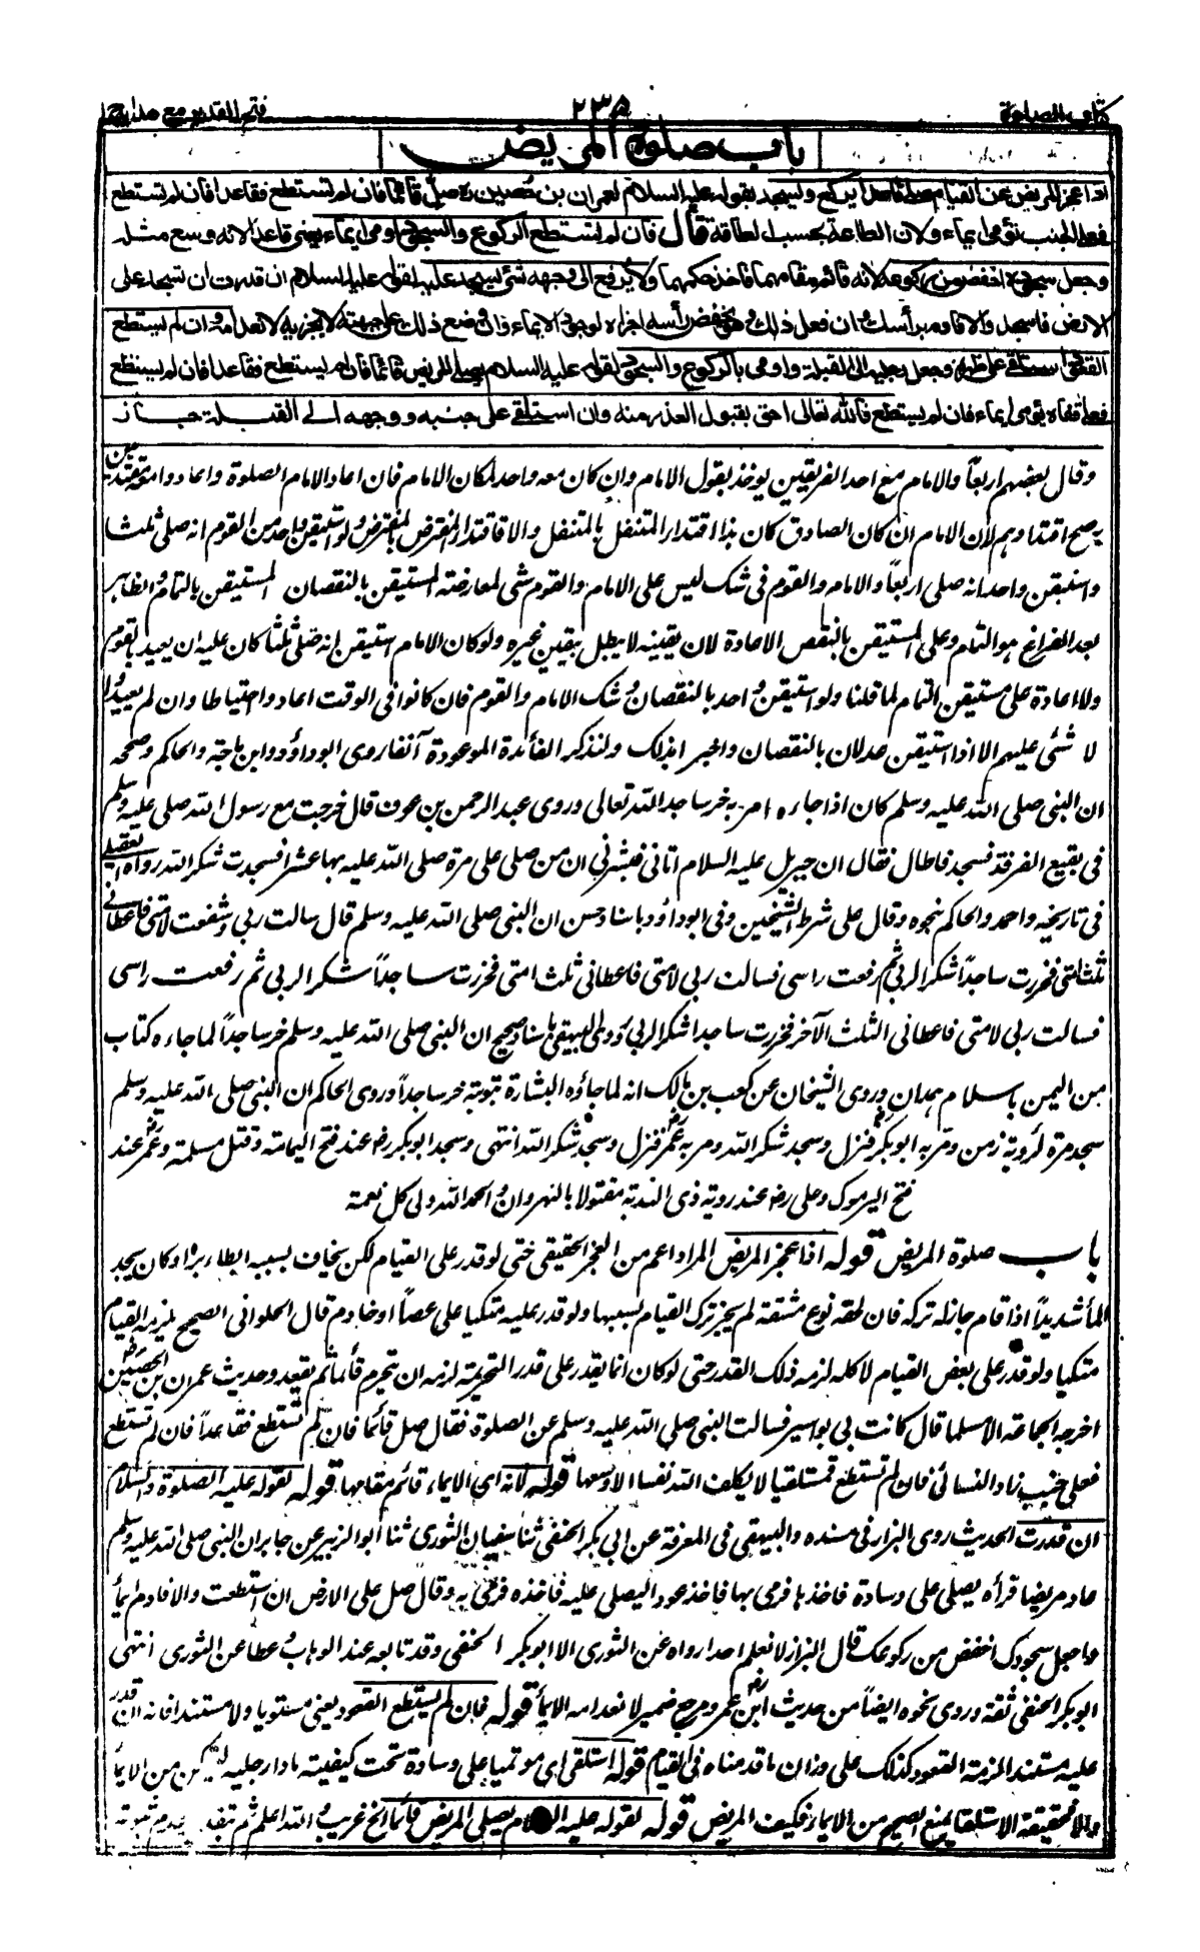 كتاب الصلوة
٢٣٥
فتح القدير مع هداية
باب صلوة المريض
اذا عجز المريض عن القيام صلى قاعدا يركع ويسجد لقوله عليه السلام لعمران بن حصين رض صل قائما فان لم تستطع فقاعدا فان لم تستطع
فعلى الجنب تؤمى ايماء ولان الطاعة بحسب الطاقة قال فان لم تستطع الركوع والسجود اومى ايماء يعنى قاعدا لانه وسع مثله
وجعل سجوده اخفض من ركوعه لانه قائم مقامهما فاخذ حكمهما ولا يرفع الى وجهه شئ يسجد عليه لقوله عليه السلام ان قدرت ان تسجد على
الارض فاسجد والا فاوم برأسك وان فعل ذلك وهو يخفض رأسه اجزاه لوجود الايماء فان وضع ذلك على جبهته لا يجزيه لانعدامه وان لم يستطع
القعود استلقى على ظهره وجعل رجليه الى القبلة واومى بالركوع والسجود لقوله عليه السلام يصلى المريض قائما فان لم يستطع فقاعدا فان لم يستطع
فعلى قفاه يؤمى ايماء فان لم يستطع فالله تعالى احق بقبول العذر منه وان استلقى على جنبه ووجهه الى القبلة جاز
وقال بعضهم اربعاً والامام مع احد الفريقين يوخذ بقول الامام وان كان معه واحد لمكان الامام فان اعاد الامام الصلوة واعادوا معه مقتدين
به صح اقتداوهم لان الامام ان كان الصادق كان هذا اقتدار المتنفل بالمتنفل والا فاقتدار المفترض بالمفترض ولو استيقن واحد من القوم انه صلى ثلثا
واستيقن واحد انه صلى اربعاً والامام والقوم فى شك ليس على الامام والقوم شى لمعارضته المستيقن بالنقصان المستيقن بالتمام والظاهر
بعد الفراغ هو التمام وعلى المستيقن بالنقص الاعادة لان يقينه لا يبطل بيقين غيره ولو كان الامام استيقن انه صلى ثلثا كان عليه ان يعيد بالقوم
ولا اعادة على مستيقن التمام لما قلنا ولو استيقن واحد بالنقصان وشك الامام والقوم فان كانوا فى الوقت اعادوا احتياطا وان لم يعيدوا
لا شئى عليهم الا اذا استيقن عدلان بالنقصان واخبر ابذلك ولنذكر الفائدة الموعودة آنفا روى ابوداؤد وابن ماجة والحاكم وصححه
ان النبى صلى الله عليه وسلم كان اذا جاءه امر به خر ساجدا لله تعالى وروى عبد الرحمن بن عوف قال خرجت مع رسول الله صلى عليه وسلم
فى بقيع الغرقد فسجد فاطال فقال ان جبريل عليه السلام اتانى فبشرنى ان من صلى على مرة صلى الله عليه بها عشرا فسجدت شكرا لله رواه العقيلى
فى تاريخه واحمد والحاكم نحوه وقال على شرط الشيخين وفى ابوداؤد باسناد حسن ان النبى صلى الله عليه وسلم قال سالت ربى وشفعت لامتى فاعطانى
ثلث امتى فخررت ساجداً شكرا لربى ثم رفعت راسى فسالت ربى لامتى فاعطانى ثلث امتى فخررت ساجداً شكرا لربى ثم رفعت راسى
فسالت ربى لامتى فاعطانى الثلث الآخر فخررت ساجدا شكرا لربى وروى البيهقى باسناد صحيح ان النبى صلى الله عليه وسلم خر ساجداً لما جاءه كتاب
من اليمن باسلام همدان وروى الشيخان عن كعب بن مالك انه لما جاؤه البشارة بتوبته خر ساجداً وروى الحاكم ان النبى صلى الله عليه وسلم
سجد مرة لرؤية زمن ومر به ابوبكر رض فنزل وسجد شكرا لله ومر به عمر رض فنزل وسجد شكرا لله انتهى وسجد ابوبكر رض عند فتح اليمامة وقتل مسلمة وعمر رض عند
فتح اليرموك وعلى رض عند روية ذى الثدية مقتولا بالنهروان والحمد لله ولى كل نعمة
باب صلوة المريض قوله اذا عجز المريض المراد اعم من العجز الحقيقى حتى لو قدر على القيام لكن يخاف بسببه ابطاء برؤ او كان يجد
الما شديداً اذا قام جاز له تركه فان لحقه نوع مشقة لم يجز ترك القيام بسببها ولو قدر عليه متكيا على عصاً او خادم قال الحلوانى الصحيح يلزمه القيام
متكيا ولو قدر على بعض القيام لا كله لزمه ذلك القدر حتى لو كان انما يقدر على قدر التحريمة لزمه ان يتحرم قائما ثم يقعد وحديث عمران بن الحصين رض
اخرجه الجماعة الا مسلما قال كانت بى بواسير فسالت النبى صلى الله عليه وسلم عن الصلوة فقال صل قائما فان لم تستطع فقاعداً فان لم تستطع
فعلى جنب زاد النسائى فان لم تستطع فمستلقيا لا يكلف الله نفسا الا وسعها قوله لانه اى الايماء قائم مقامها قوله لقوله عليه الصلوة والسلام
ان قدرت الحديث روى البزار فى مسنده والبيهقى فى المعرفة عن ابى بكر الحنفى ثنا سفيان الثورى ثنا ابو الزبير عن جابر ان النبى صلى الله عليه وسلم
عاد مريضا فرأه يصلى على وسادة فاخذها فرمى بها فاخذ عود اليصلى عليه فاخذه فرمى به وقال صل على الارض ان استطعت والا فاوم ايمأ
واجعل سجودك اخفض من ركوعك قال البزار لا نعلم احدا رواه عن الثورى الا ابوبكر الحنفى وقد تابعه عبد الوهاب وعطا عن الثورى انتهى
ابوبكر الحنفى ثقة وروى نحوه ايضاً من حديث ابن عمر رض ومرجع ضمير لانعدامه الايمأ قوله فان لم يستطع القعود يعنى مستويا ولا مستندا فانه ان قدر
عليه مستندا لزمة القعود كذلك على وزان ما قدمناه فى القيام قوله استلقى اى مرتميا على وسادة تحت كتفيه مادا رجليه ليتمكن من الايمأ
والا فحقيقة الاستلقا يمنع الصحيح من الايماء فكيف المريض قوله لقوله عليه السلام يصلى المريض قائما الخ غريب والله اعلم ثم